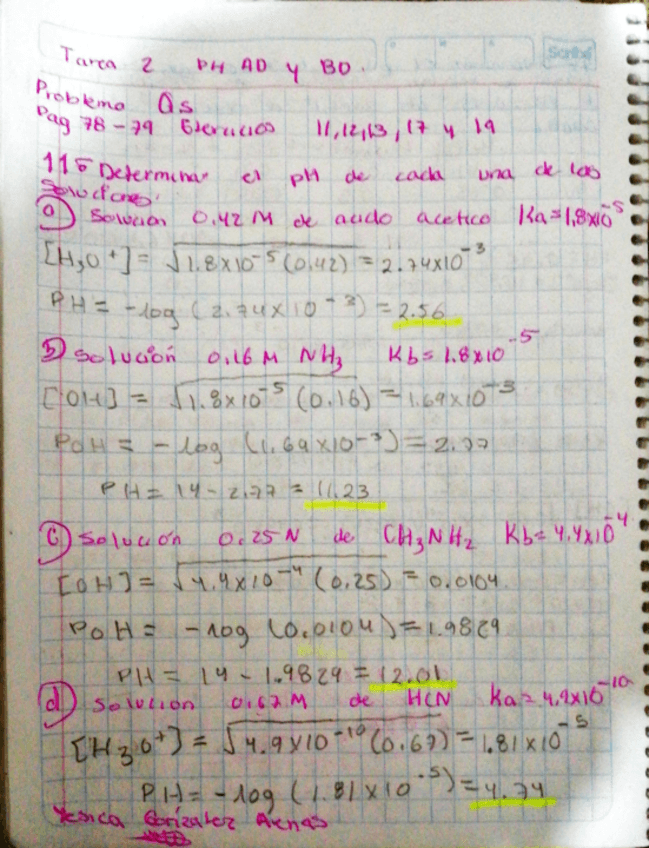 Tarea 2 PH AD y BD.
Scribe
Problema Qs
Pag 78-79 Ejercicios 11,12,13, 17 y 19
11 Determinar el pH de cada una de las
soluciones.
a) Solución 0.42 M de acido acetico Ka=1,8x10⁻⁵
[H₃O⁺] = √1.8x10⁻⁵(0.42) = 2.74x10⁻³
PH = -log (2.74x10⁻³) = 2.56
b) Solución 0.16 M NH₃ Kb=1.8x10⁻⁵
[OH] = √1.8x10⁻⁵(0.16) = 1.69x10⁻³
POH = -log (1.69x10⁻³) = 2.77
PH = 14 - 2.77 = 11.23
c) Solución 0.25 N de CH₃NH₂ Kb=4.4x10⁻⁴
[OH] = √4.4x10⁻⁴(0.25) = 0.0104
POH = -log (0.0104) = 1.9829
PH = 14 - 1.9829 = 12.01
d) Solución 0.67 M de HCN Ka=4.9x10⁻¹⁰
[H₃O⁺] = √4.9x10⁻¹⁰(0.67) = 1.81x10⁻⁵
PH = -log (1.81x10⁻⁵) = 4.74
Yesica González Arenas